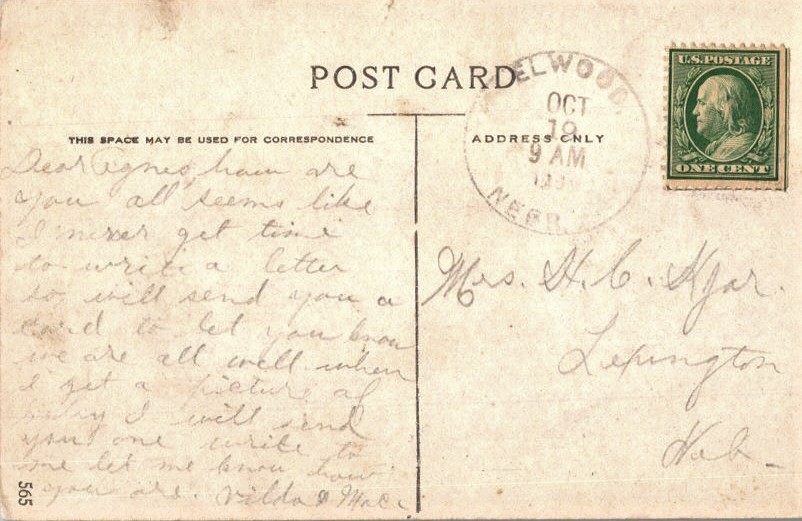 POST CARD
ELWOOD
OCT
19
9 AM
NEBR.
U.S. POSTAGE
ONE CENT
THIS SPACE MAY BE USED FOR CORRESPONDENCE
ADDRESS ONLY
Dear Agnes, how are
you all seems like
I never get time
to write a letter
so will send you a
card to let you know
we are all well when
I get a picture of
I will send
you one write to
me let me know how
you are. Vilda &
Mrs. H. C. Kjar.
Lexington
Neb.
565